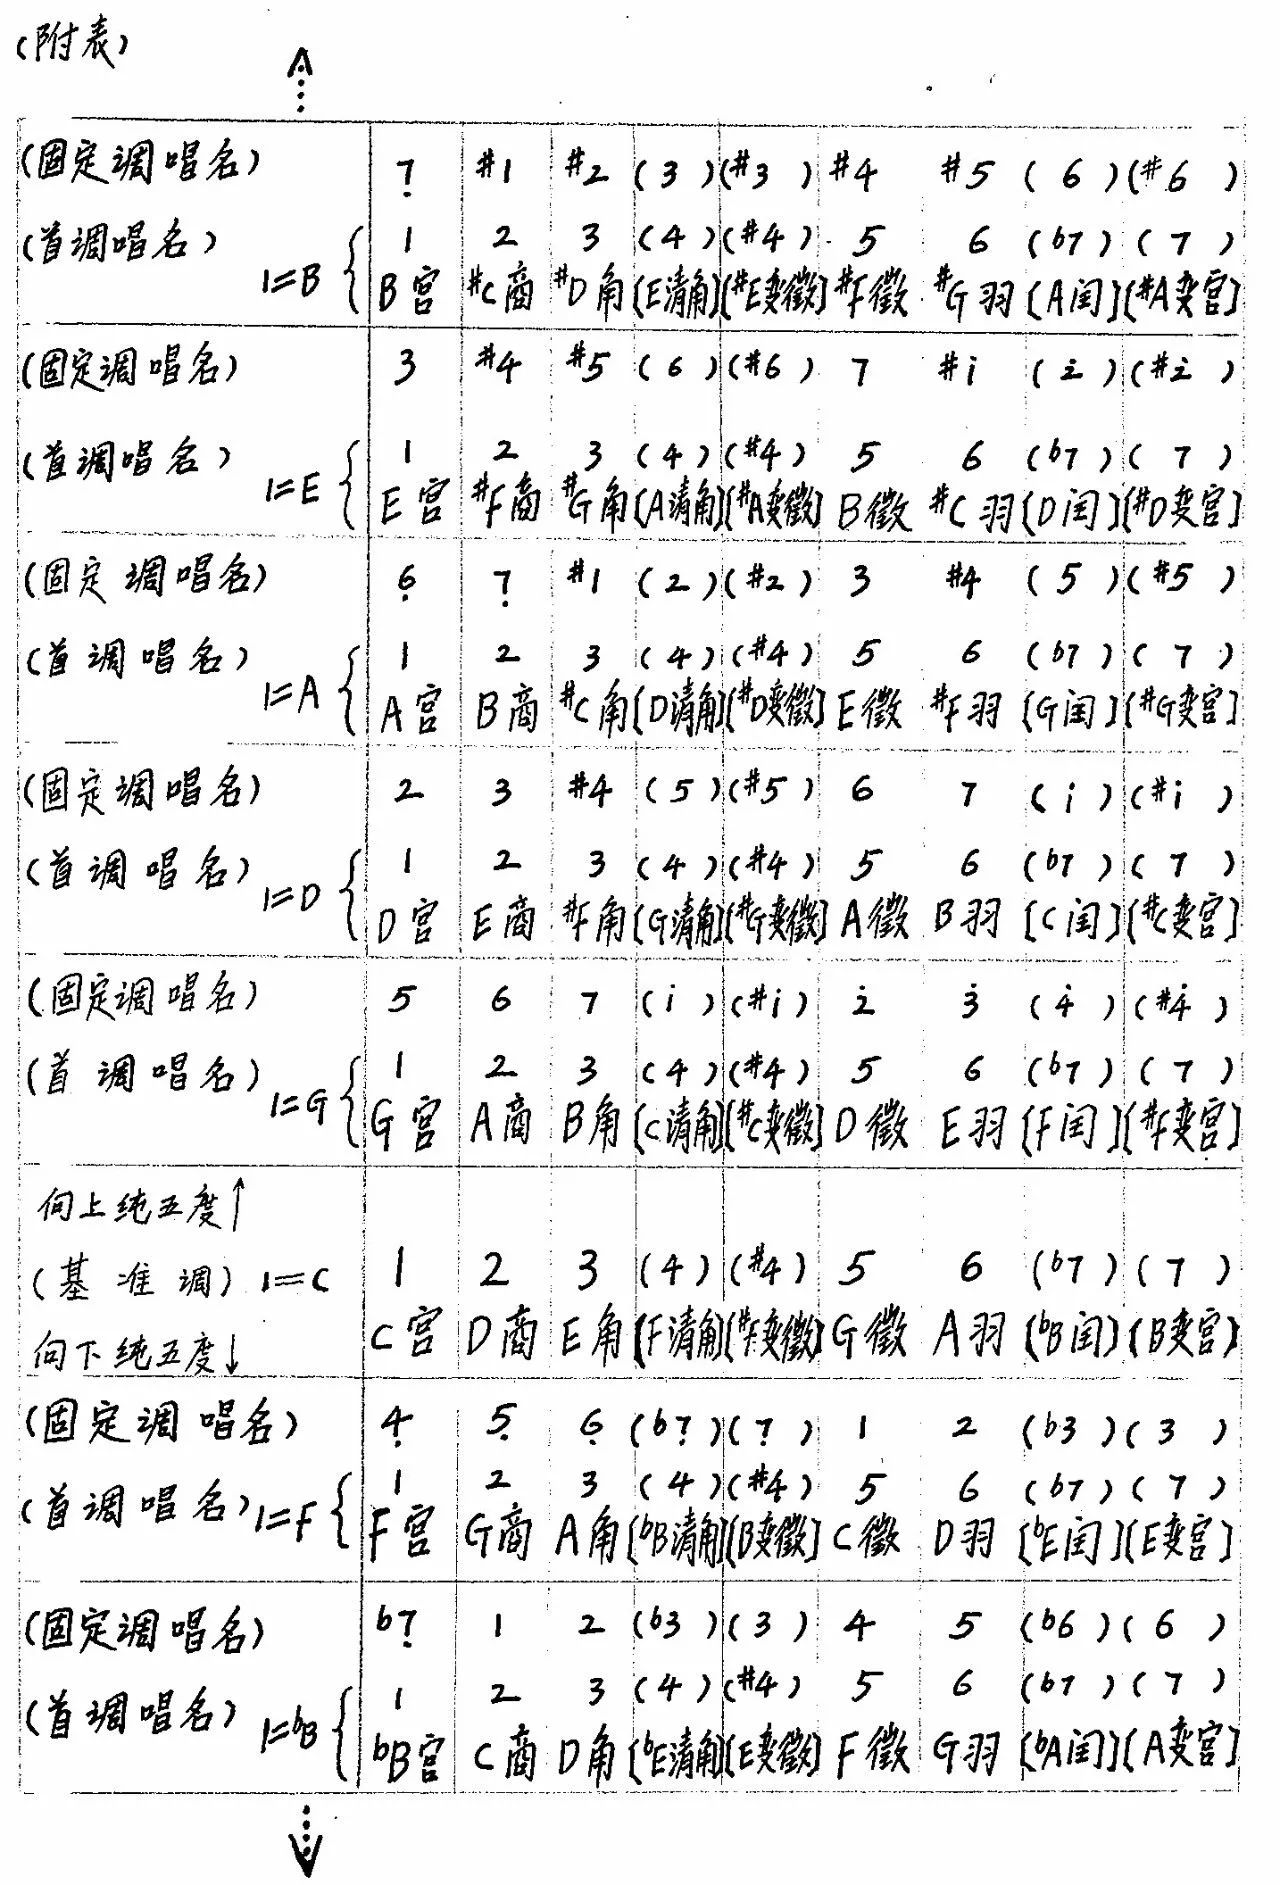 (附表)
(固定调唱名) 7̣ #1 #2 (3) (#3) #4 #5 (6) (#6)
(首调唱名) 1 2 3 (4) (#4) 5 6 (b7) (7)
1=B { B宫 #C商 #D角 [E清角] [#E变徵] #F徵 #G羽 [A闰] [#A变宫]
(固定调唱名) 3 #4 #5 (6) (#6) 7 #i (2̇) (#2̇)
(首调唱名) 1 2 3 (4) (#4) 5 6 (b7) (7)
1=E { E宫 #F商 #G角 [A清角] [#A变徵] B徵 #C羽 [D闰] [#D变宫]
(固定调唱名) 6̣ 7̣ #1 (2) (#2) 3 #4 (5) (#5)
(首调唱名) 1 2 3 (4) (#4) 5 6 (b7) (7)
1=A { A宫 B商 #C角 [D清角] [#D变徵] E徵 #F羽 [G闰] [#G变宫]
(固定调唱名) 2 3 #4 (5) (#5) 6 7 (i) (#i)
(首调唱名) 1 2 3 (4) (#4) 5 6 (b7) (7)
1=D { D宫 E商 #F角 [G清角] [#G变徵] A徵 B羽 [C闰] [#C变宫]
(固定调唱名) 5 6 7 (i) (#i) 2̇ 3̇ (4̇) (#4̇)
(首调唱名) 1 2 3 (4) (#4) 5 6 (b7) (7)
1=G { G宫 A商 B角 [C清角] [#C变徵] D徵 E羽 [F闰] [#F变宫]
向上纯五度↑
(基准调) 1=C 1 2 3 (4) (#4) 5 6 (b7) (7)
C宫 D商 E角 [F清角] [#F变徵] G徵 A羽 [bB闰] [B变宫]
向下纯五度↓
(固定调唱名) 4̣ 5̣ 6̣ (b7̣) (7̣) 1 2 (b3) (3)
(首调唱名) 1 2 3 (4) (#4) 5 6 (b7) (7)
1=F { F宫 G商 A角 [bB清角] [B变徵] C徵 D羽 [bE闰] [E变宫]
(固定调唱名) b7̣ 1 2 (b3) (3) 4 5 (b6) (6)
(首调唱名) 1 2 3 (4) (#4) 5 6 (b7) (7)
1=bB { bB宫 C商 D角 [bE清角] [E变徵] F徵 G羽 [bA闰] [A变宫]